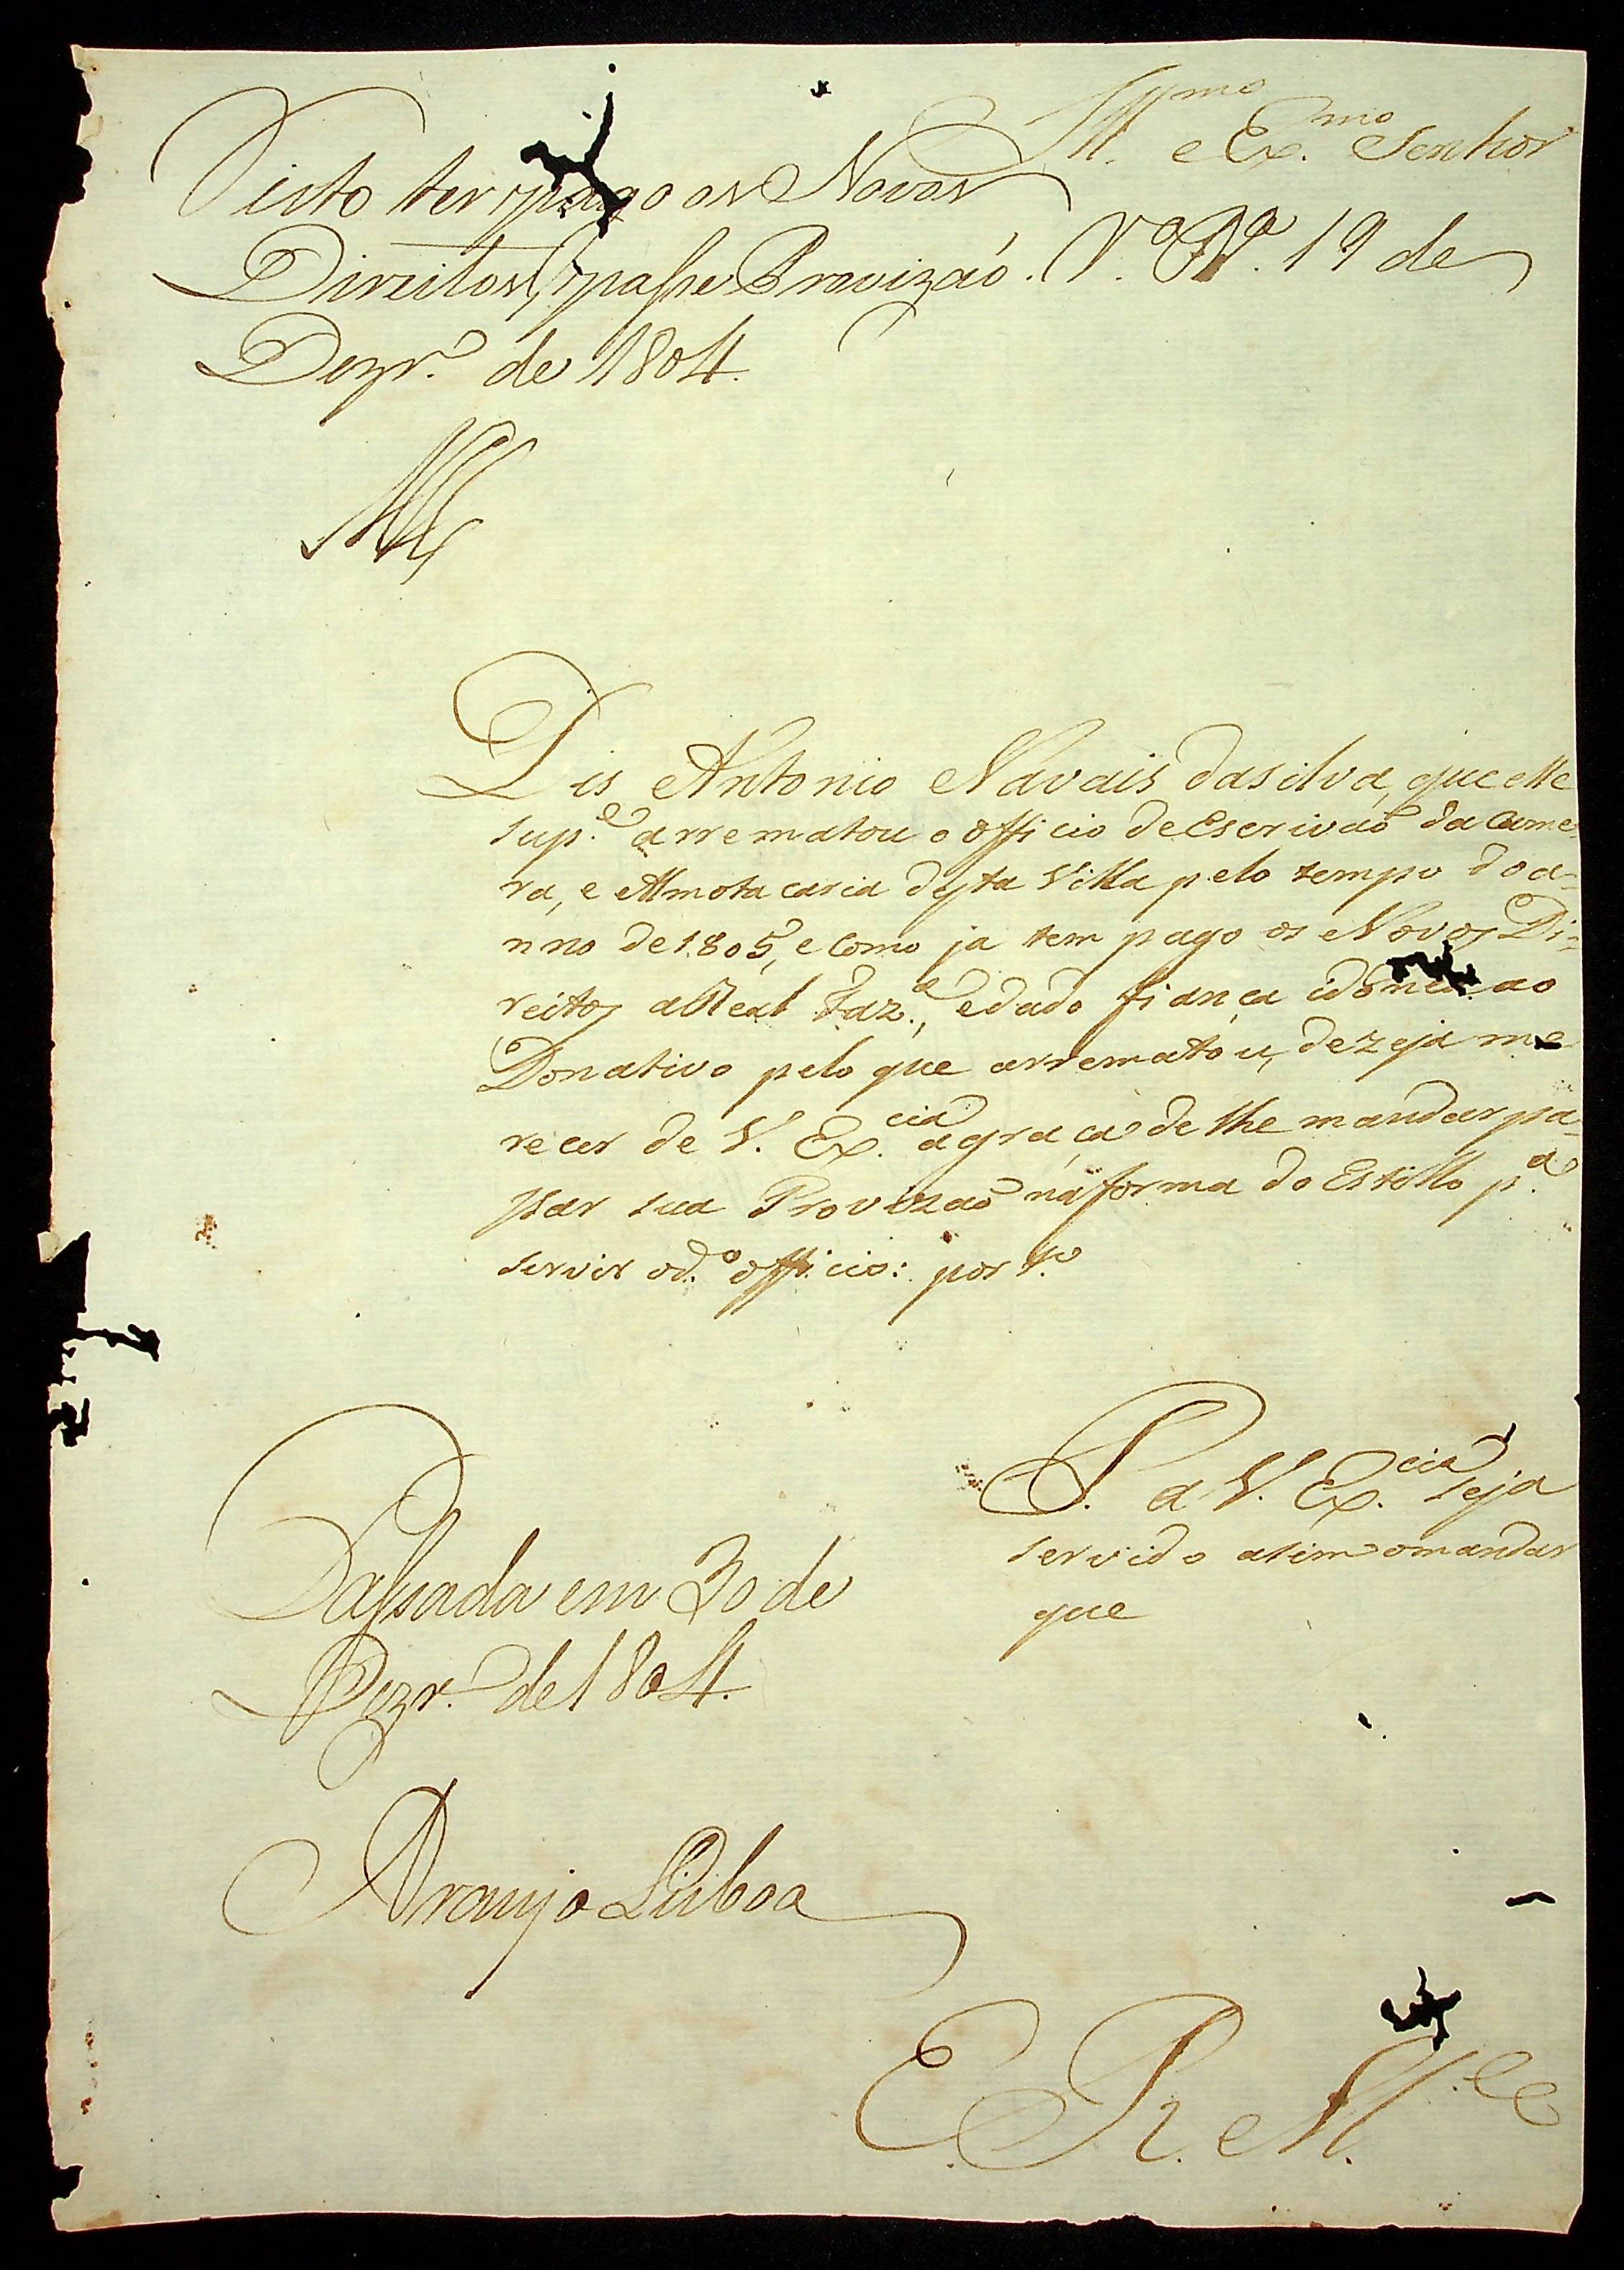 Ill.mo e Ex.mo Senhor
Visto ter pago os Novos
Direitos, passe Provizaó. V.a R.a 19 de
Dezr.o de 1804.
Dis Antonio Navais dasilva, que elle
sup.e arrematou o officio de Escrivaõ da Came-
ra, e Almotacaria desta Villa pelo tempo do a-
nno de 1805, e Como ja tem pago os Novos Di-
reitos aReal Faz.a, edado fiança idonea ao
Donativo pelo que arrematou, dezeja me-
recer de V. Ex.cia agraça de lhe mandar pa-
ssar sua Provizaõ na forma do Estillo p.a
servir od.o officio: por t.o
P. a V. Ex.cia seja
servido asim omandar
que
Passada em 30 de
Dezr.o de 1804.
Araujo Lisboa
E. R. M.ce